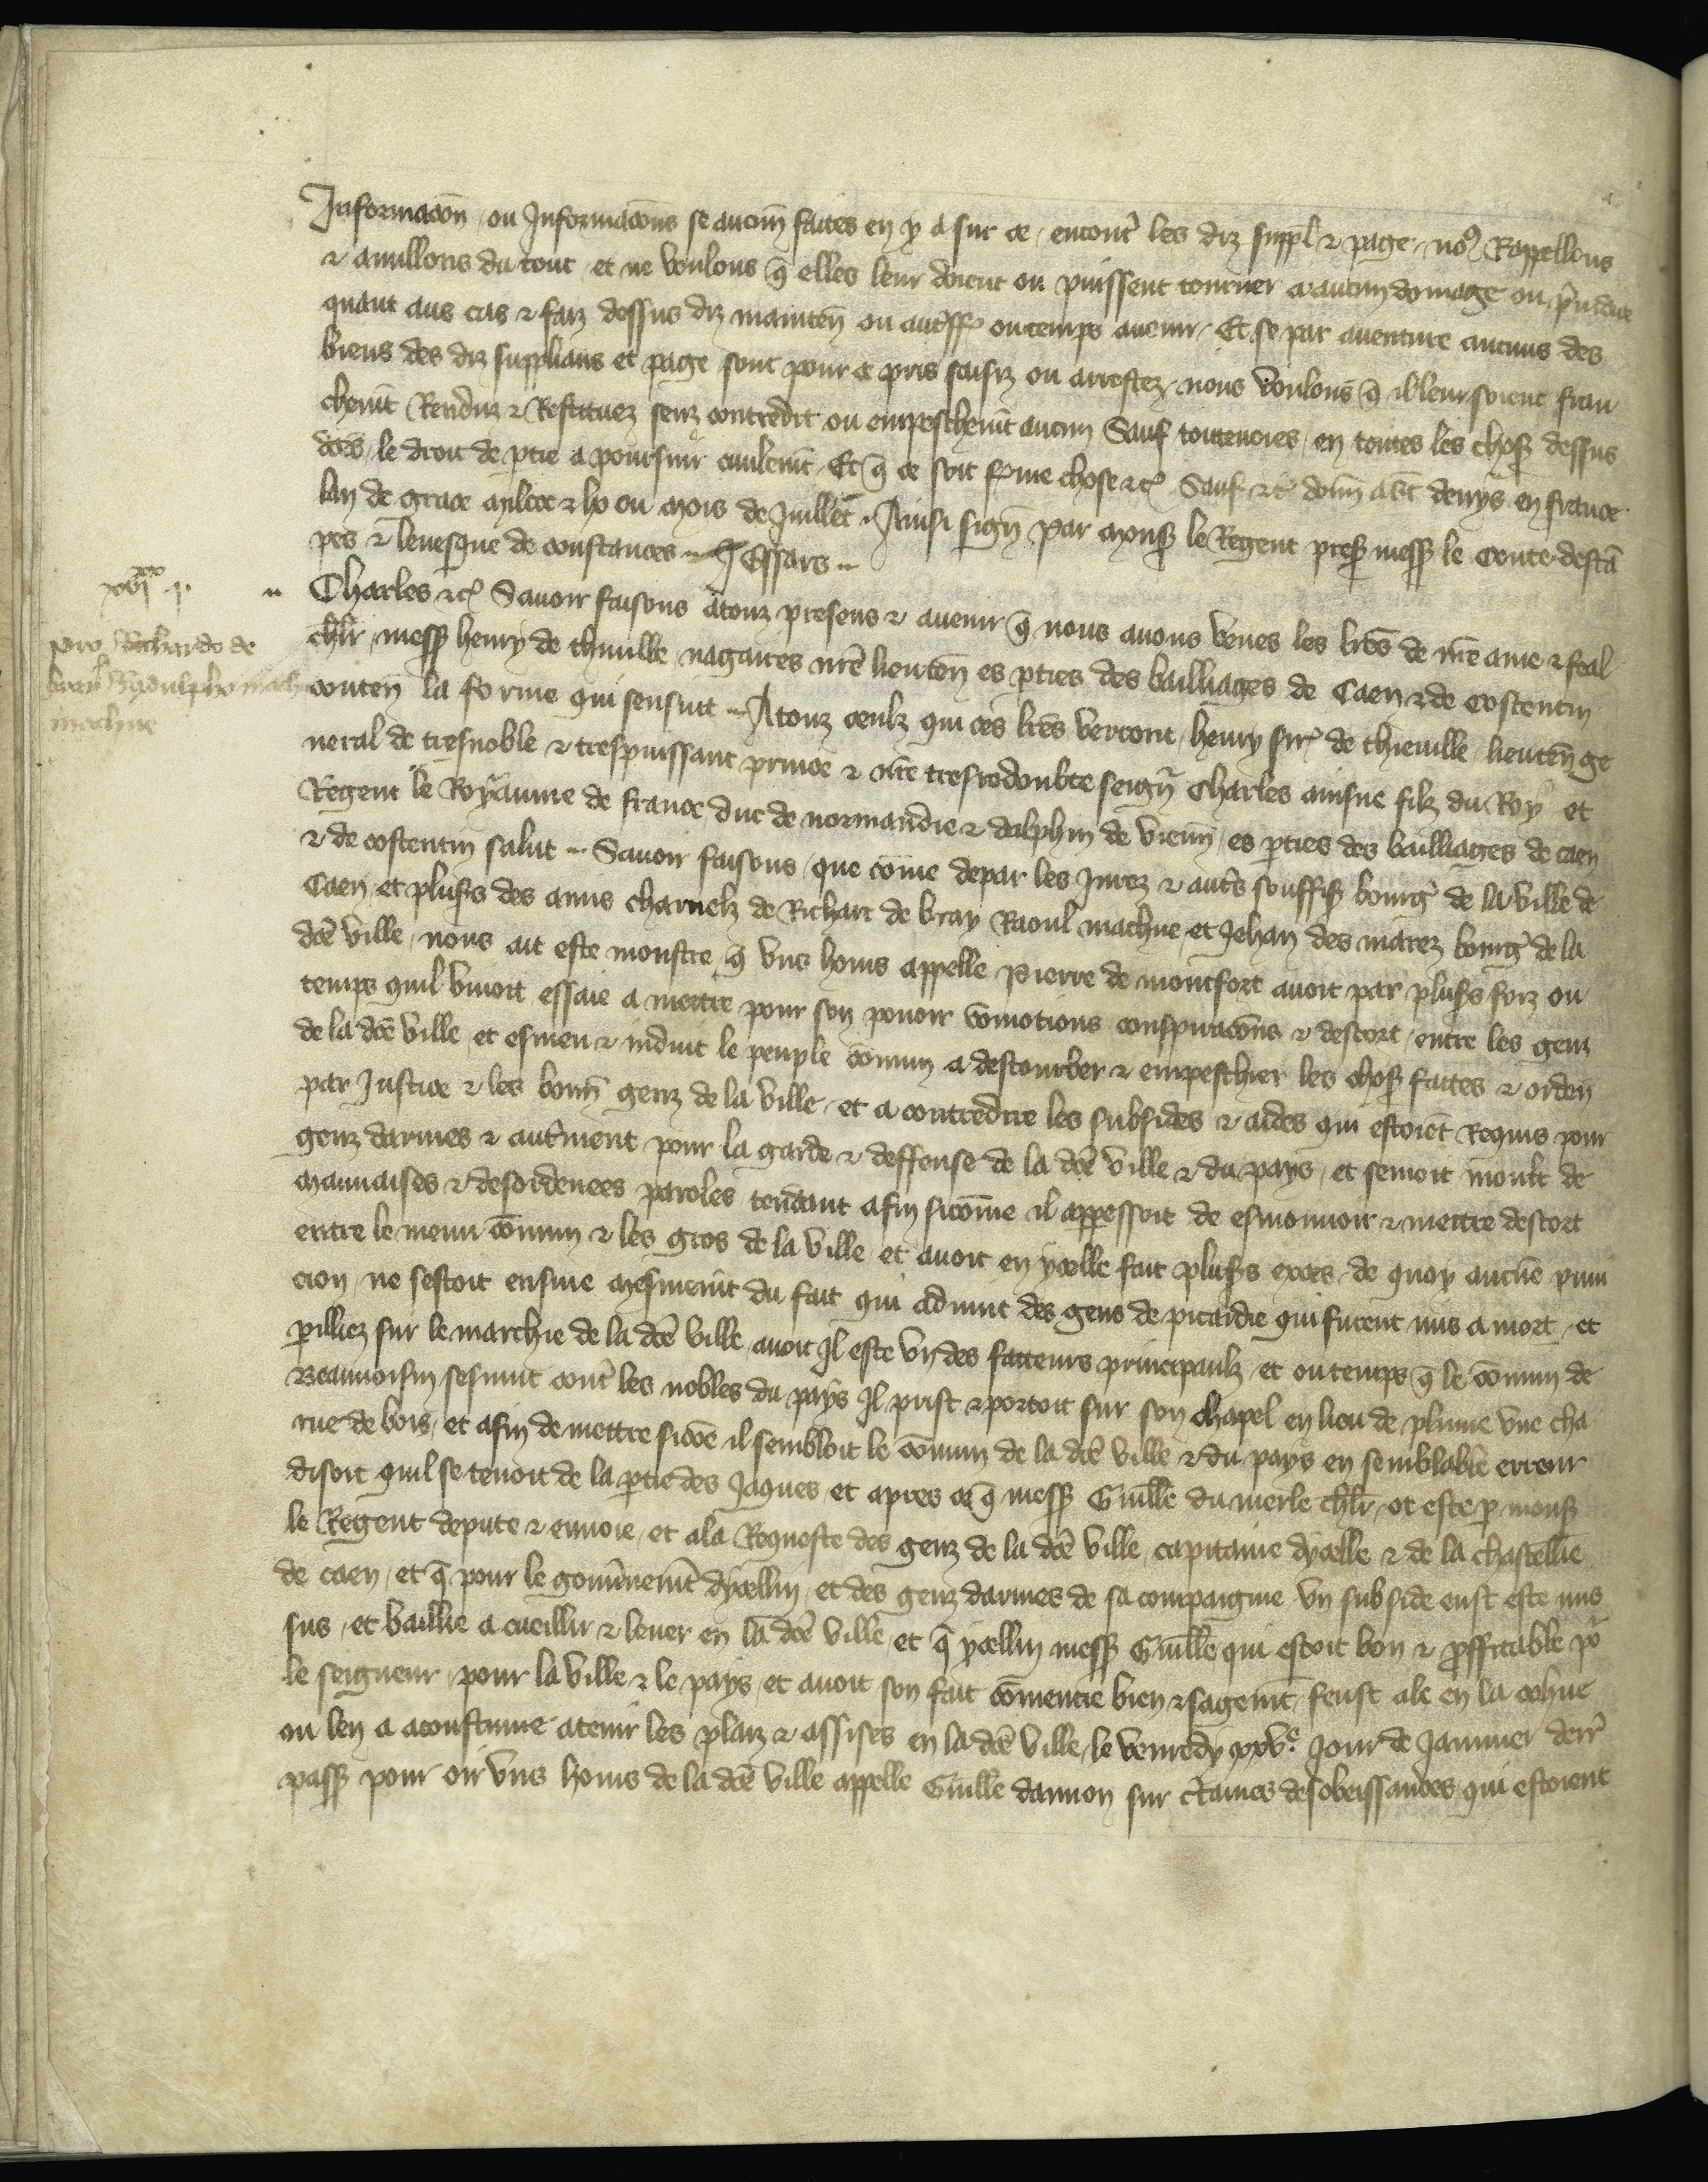 Informacon ou Informacons se aucun faites en y a sur ce encontr les diz suppl & page no9 Rappellons
& anullons du tout et ne voulons q elles leur doient ou puissent tourner a aucun domage ou preiudice
quant aus cas & faiz dessus diz mainten ou autreff ou temps avenir Et se par aventure aucuns des
biens des diz supplians et page sont pour ce pris saisiz ou arrestez nous voulons q il leur soient fran
chemt Renduz & Restituez senz contredit ou empeschemt aucun Sauf toutevoies en toutes les chos dessus
dces le droit de ptie a poursuir civilemt Et q ce soit ferme chose &c Sauf &c donn a St denys en france
lan de grace mil ccc & lv ou mois de Juillet Ainsi sign Par mons le Regent pres mess le Conte destã
pes & levesque de constances J Essars
xviˣˣ i
Pro Richardo de
Charles &c Savoir faisons a touz presens & avenir q nous avons veues les lres de nre ame & feal
chlr mess henry de thieuville nagaires nre lieuten es pties des bailliages de Caen & de Costentin
conten la forme qui sensuit A touz ceulz qui ces lres verront henry sire de thieuville lieuten ge
neral de tresnoble & trespuissant prince & nre tresredoubte seign Charles ainsne filz du Roy et
Regent le Royaume de france duc de normandie & dalphin de vienn es pties des bailliages de caen
& de costentin salut Savoir faisons que come depar les Jurez & autes souffis bourg de la ville de
Caen et pluss des amis charnelz de Richart de bray Raoul machue et Jehan des marez bourg de la
dce ville nous ait este monstre q uns homs appelle Pierre de montfort avoit par pluss foiz ou
temps quil vivoit essaie a mettre pour son pouoir comotions conspiracons & descort entre les genz
de la dce ville et esmeu & induit le peuple comun a destourber & empeschier les chos faites & orden
par Justice & les bonn genz de la ville et a contredire les subsides & aides qui estoiet Requis pour
genz darmes & autment pour la garde & deffense de la dce ville & du pays et semoit moult de
mauvaises & desordenees paroles tendant afin sicome il apparessoit de esmouvoir & mettre descort
entre le menu comun & les gros de la ville et avoit en ycelle fait pluss exces de quoy aucune puni
cion ne sestoit ensuie mesmemt du fait qui advint des gens de picardie qui furent mis a mort et
pilliez sur le marchie de la dce ville avoit Il este un des facteurs principaulz et ou temps q le comun de
Beauvoisin sesmut cont les nobles du pays Il prist & portoit sur son chapel en lieu de plume une cha
rue de bois et afin de mettre sicoe il sembloit le comun de la dce ville & du pays en semblable erreur
disoit quil se tenoit de la ptie des Jaques et apres ce q mess Guille du merle chlr ot este p mons
le Regent depute & envoie et a la Requeste des genz de la dce ville capitaine dycelle & de la chastellie
de caen et q pour le gouvnemt dycellui et des genz darmes de sa compaignie un subside eust este mis
sus et baillie a cueillir & lever en la dce ville et q ycellui mess Guille qui estoit bon & proffitable po
le seigneur pour la ville & le pays et avoit son fait comencie bien & sagemt feust ale en la cohue
ou len a acoustume a tenir les plaiz & assises en la dce ville le venredy xxvᵉ Jour de Janvier derr
pass pour oir uns homs de la dce ville appelle Guille danvon sur ctaines desobeissances qui estoient